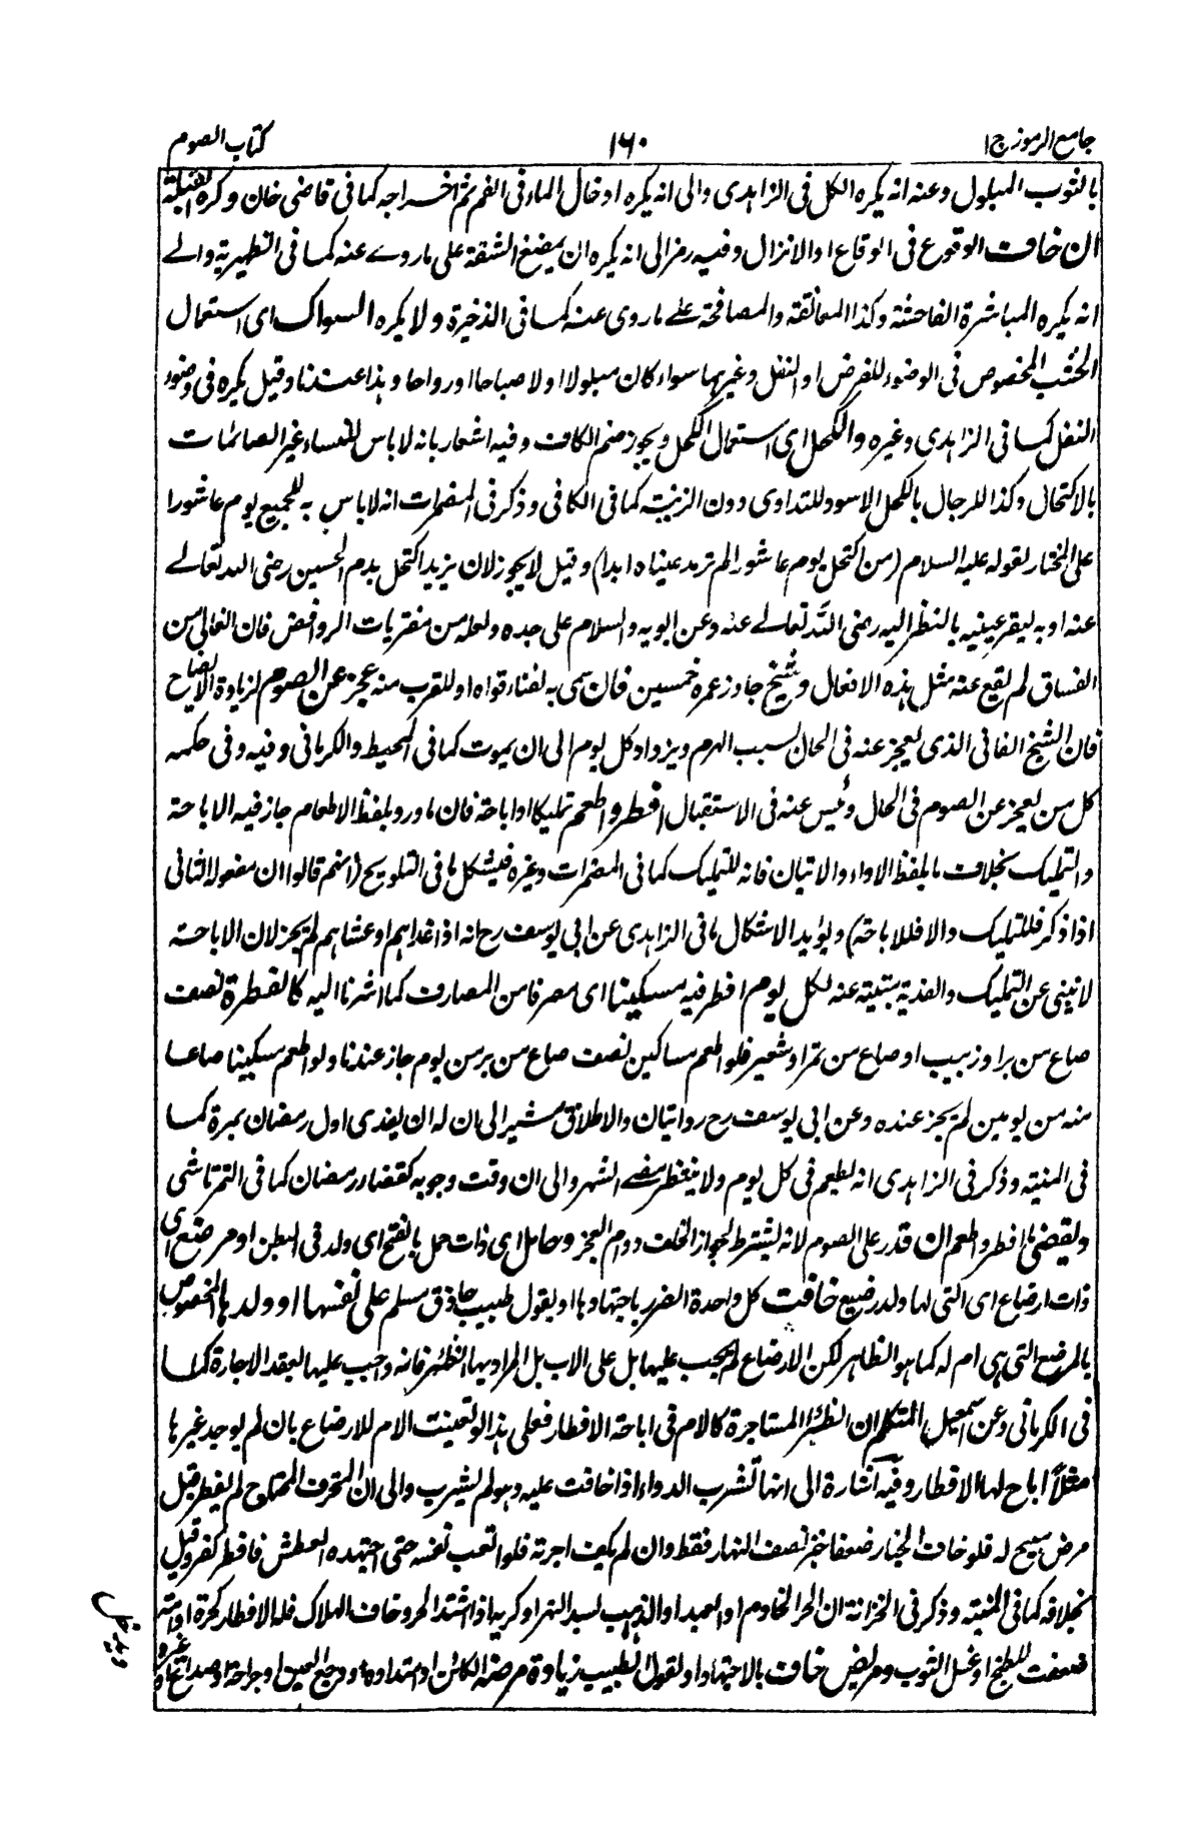 جامع الرموز ج١ ١٦٠ كتاب الصوم
بالثوب المبلول وعنه انه يكره الكل فى الزاهدى والى انه يكره ادخال الماء فى الفم ثم اخراجه كما فى قاضى خان وكره القبلة
ان خاف الوقوع فى الوقاع او الانزال وفيه رمز الى انه يكره ان يمضغ الشفة على ما روى عنه كما فى الظهيرية والى
انه يكره المباشرة الفاحشة وكذا المعانقة والمصافحة على ما روى عنه كما فى الذخيرة ولا يكره السواك اى استعمال
الخشب المخصوص فى الوضوء للفرض او النفل وغيرهما سواء كان مبلولا او لا صباحا او رواحا وهذا عندنا وقيل يكره فى وضوء
النفل كما فى الزاهدى وغيره والكحل اى استعمال الكحل ويجوز ضم الكاف وفيه اشعار بانه لا باس للنساء غير الصائمات
بالاكتحال وكذا للرجال بالكحل الاسود للتداوى دون الزينة كما فى الكافى وذكر فى المضمرات انه لا باس به للجميع يوم عاشورا
على المختار لقوله عليه السلام (من اكتحل يوم عاشورا لم ترمد عيناه ابدا) وقيل لا يجوز لان يزيد اكتحل بدم الحسين رضى الله تعالى
عنه او به ليقر عينيه بالنظر اليه رضى الله تعالى عنه وعن ابويه والسلام على جده ولعله من مفتريات الروافض فان الغالى من
الفساق لم يقع عنه مثل هذه الافعال وشيخ جاوز عمره خمسين فان سمى به لفناء قواه او للقرب منه عجز عن الصوم لزيادة الايضاح
فان الشيخ الفانى الذى يعجز عنه فى الحال بسبب الهرم ويزداد كل يوم الى ان يموت كما فى المحيط والكرمانى وفيه وفى حكمه
كل من يعجز عن الصوم فى الحال ويئس عنه فى الاستقبال افطر واطعم تمليكا او اباحة فان ما ورد بلفظ الاطعام جاز فيه الاباحة
والتمليك بخلاف ما بلفظ الاداء والاتيان فانه للتمليك كما فى المضمرات وغيره فيشكل ما فى التلويح (انهم قالوا ان مفعوله الثانى
اذا ذكر فللتمليك والا فللاباحة) ويؤيد الاشكال ما فى الزاهدى عن ابى يوسف رح انه اذا غداهم او عشاهم لم يجز لان الاباحة
لا تنبئ عن التمليك والفدية مبنية عنه لكل يوم افطر فيه مسكينا اى مصرفا من المصارف كما اشرنا اليه كالفطرة نصف
صاع من بر او زبيب او صاع من تمر او شعير فلو اطعم مساكين نصف صاع من بر من يوم جاز عندنا ولو اطعم مسكينا صاعا
منه من يومين لم يجز عنده وعن ابى يوسف رح روايتان والاطلاق مشير الى ان له ان يفدى اول رمضان بمرة كما
فى المنية وذكر فى الزاهدى انه يطعم فى كل يوم ولا ينتظر مضى الشهر والى ان وقت وجوبه كقضاء رمضان كما فى التمرتاشى
ويقضى ما افطر واطعم ان قدر على الصوم لانه يشترط لجواز الخلف دوام العجز وحامل اى ذات حمل بالفتح اى ولد فى البطن او مرضع اى
ذات ارضاع اى التى لها ولد رضيع خافت كل واحدة الضرر باجتهادها او بقول طبيب حاذق مسلم على نفسها او ولدها المخصوص
بالمرضع التى هى ام له كما هو الظاهر لكن الارضاع لم يجب عليها بل على الاب بل المراد بها الظئر فانه وجب عليها بعقد الاجارة كما
فى الكرمانى وعن اسمعيل المتكلم ان الظئر المستاجرة كالام فى اباحة الافطار فعلى هذا لو تعينت الام للارضاع بان لم يوجد غيرها
مثلاً اباح لها الافطار وفيه اشارة الى انها تشرب الدواء اذا خافت عليه وهو لم يشرب والى ان المحترف المحتاج لم يفطر قبل
مرض مبيح له فلو خاف الخباز ضعفا خبز نصف النهار فقط وان لم يكف اجرته فلو اتعب نفسه حتى اجهده العطش فافطر كفر وقيل
بخلافه كما فى المنية وذكر فى الخزانة ان الحر الخادم او العبد او الذاهب لسد النهر او كريه اذا اشتد الحر وخاف الهلاك فله الافطار كحرة او امة
ضعفت للطبخ او غسل الثوب ومريض خاف بالاجتهاد او لقول الطبيب زيادة مرضه الكائن او امتداده او وجع العين او جراحة او صداع او غيره